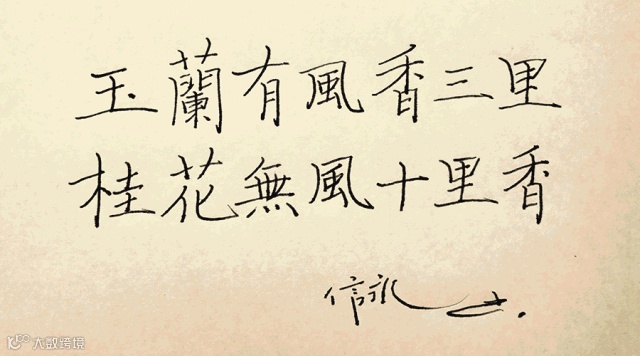 玉蘭有風香三里
桂花無風十里香
信永
大数跨境